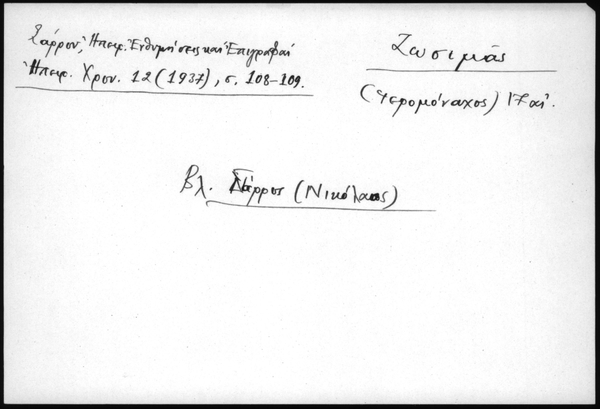 Σάρρου, Ἠπειρ. Ἐνθυμήσεις καὶ Ἐπιγραφαί
Ἠπειρ. Χρον. 12 (1937), σ. 108-109.
Ζωσιμᾶς
(ἱερομόναχος) 17 αἰ.
Βλ. (Νικόλαος)